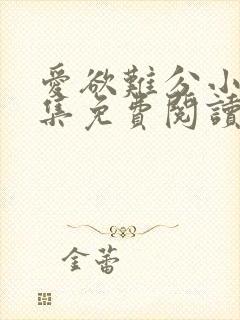 愛欲難分小
集免費閱讀
金蕾